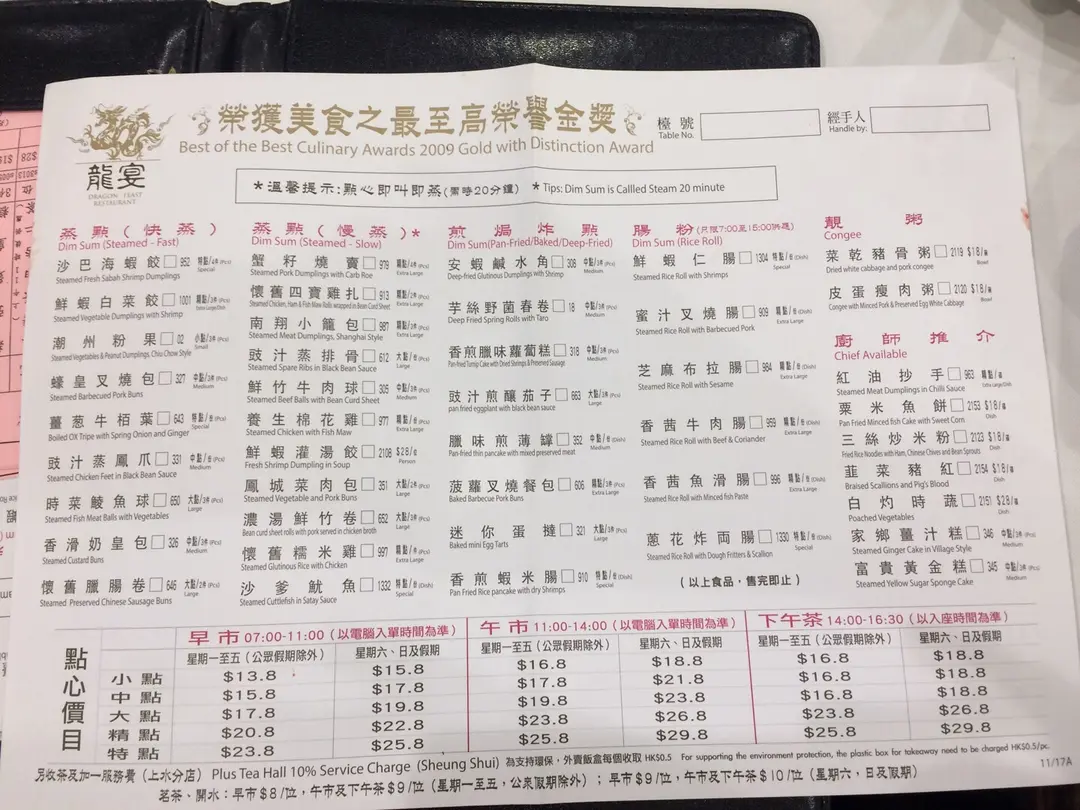 榮獲美食之最至高榮譽金獎
Best of the Best Culinary Awards 2009 Gold with Distinction Award
龍宴
DRAGON FEAST
RESTAURANT
檯號
Table No.
經手人
Handle by:
*溫馨提示:點心即叫即蒸(需時20分鐘) *Tips: Dim Sum is Callled Steam 20 minute
蒸點(快蒸)
Dim Sum (Steamed - Fast)
沙巴海蝦餃 952 精點/4件(Pcs)
Steamed Fresh Sabah Shrimp Dumplings Special
鮮蝦白菜餃 1001
Steamed Vegetable Dumplings with Shrimp
潮州粉果 02 小點/3件(Pcs)
Steamed Vegetables & Peanut Dumplings, Chiu Chow Style Small
蠔皇叉燒包 327 中點/3件(Pcs)
Steamed Barbecued Pork Buns Medium
薑葱牛栢葉 643 特點/份(Pcs)
Boiled OX Tripe with Spring Onion and Ginger Special
豉汁蒸鳳爪 331 中點/份(Pcs)
Steamed Chicken Feet in Black Bean Sauce Medium
時菜鯪魚球 650 大點/3件(Pcs)
Steamed Fish Meat Balls with Vegetables Large
香滑奶皇包 326 中點/3件(Pcs)
Steamed Custard Buns Medium
懷舊臘腸卷 646 大點/3件(Pcs)
Steamed Preserved Chinese Sausage Buns Large
蒸點(慢蒸)*
Dim Sum (Steamed - Slow)
蟹籽燒賣 979 精點/4件(Pcs)
Steamed Pork Dumplings with Carb Roe Extra Large
懷舊四寶雞扎 913 精點/3件(Pcs)
Steamed Chicken, Ham & Fish Maw Rolls wrapped in Bean Curd Sheet Extra Large
南翔小籠包 987 精點/3件(Pcs)
Steamed Meat Dumplings, Shanghai Style Extra Large
豉汁蒸排骨 612 大點/份(Pcs)
Steamed Spare Ribs in Black Bean Sauce Large
鮮竹牛肉球 305 中點/3件(Pcs)
Steamed Beef Balls with Bean Curd Sheet Medium
養生棉花雞 977 精點/份(Pcs)
Steamed Chicken with Fish Maw Extra Large
鮮蝦灌湯餃 2108 $28/位
Fresh Shrimp Dumpling in Soup Person
鳳城菜肉包 351 大點/3件(Pcs)
Steamed Vegetable and Pork Buns Large
濃湯鮮竹卷 652 大點/3件(Pcs)
Bean curd sheet rolls with pork served in chicken broth Large
懷舊糯米雞 997 精點/2件(Pcs)
Steamed Glutinous Rice with Chicken Extra Large
沙爹魷魚 1332 特點/份(Dish)
Steamed Cuttlefish in Satay Sauce Special
煎焗炸點
Dim Sum(Pan-Fried/Baked/Deep-Fried)
安蝦鹹水角 308 中點/3件(Pcs)
Deep-fried Glutinous Dumplings with Shrimp Medium
芋絲野菌春卷 18 中點/3件(Pcs)
Deep Fried Spring Rolls with Taro Medium
香煎臘味蘿蔔糕 318 中點/3件(Pcs)
Pan-fried Turnip Cake with Dried Shrimps & Preserved Sausage Medium
豉汁煎釀茄子 663 大點/3件(Pcs)
pan fried eggplant with black bean sauce Large
臘味煎薄罉 352 中點/份(Dish)
Pan-fried thin pancake with mixed preserved meat Medium
菠蘿叉燒餐包 606 精點/3件(Pcs)
Baked Barbecue Pork Buns Extra Large
迷你蛋撻 321 大點/3件(Pcs)
Baked mini Egg Tarts Large
香煎蝦米腸 910 特點/份(Dish)
Pan Fried Rice pancake with dry Shrimps Special
腸粉(只限7:00至16:00供應)
Dim Sum (Rice Roll)
鮮蝦仁腸 1304 特點/份(Dish)
Steamed Rice Roll with Shrimps Special
蜜汁叉燒腸 909 精點/份(Dish)
Steamed Rice Roll with Barbecued Pork Extra Large
芝麻布拉腸 984 精點/份(Dish)
Steamed Rice Roll with Sesame Extra Large
香茜牛肉腸 959 精點/份(Dish)
Steamed Rice Roll with Beef & Coriander Extra Large
香茜魚滑腸 996 精點/份(Dish)
Steamed Rice Roll with Minced fish Paste Extra Large
蔥花炸両腸 1330 特點/份(Dish)
Steamed Rice Roll with Dough Fritters & Scallion Special
(以上食品,售完即止)
靚粥
Congee
菜乾豬骨粥 2119 $18/碗
Dried white cabbage and pork congee Bowl
皮蛋瘦肉粥 2120 $18/碗
Congee with Minced Pork & Preserved Egg White Cabbage Bowl
廚師推介
Chief Available
紅油抄手 963 精點/碟
Steamed Meat Dumplings in Chilli Sauce Extra Large/Dish
粟米魚餅 2153 $18/碟
Pan Fried Minced fish Cake with Sweet Corn Dish
三絲炒米粉 2123 $18/碟
Fried Rice Noodles with Ham, Chinese Chives and Bean Sprouts Dish
韮菜豬紅 2154 $18/碟
Braised Scallions and Pig's Blood Dish
白灼時蔬 2151 $28/碟
Poached Vegetables Dish
家鄉薑汁糕 346 中點/3件(Pcs)
Steamed Ginger Cake in Village Style Medium
富貴黃金糕 345 中點/3件(Pcs)
Steamed Yellow Sugar Sponge Cake Medium
點心價目
早市 07:00-11:00 (以電腦入單時間為準) 午市 11:00-14:00 (以電腦入單時間為準) 下午茶 14:00-16:30 (以入座時間為準)
星期一至五(公眾假期除外) 星期六、日及假期 星期一至五(公眾假期除外) 星期六、日及假期 星期一至五(公眾假期除外) 星期六、日及假期
小點 $13.8 $15.8 $16.8 $18.8 $16.8 $18.8
中點 $15.8 $17.8 $17.8 $21.8 $16.8 $18.8
大點 $17.8 $19.8 $19.8 $23.8 $16.8 $18.8
精點 $20.8 $22.8 $23.8 $26.8 $23.8 $26.8
特點 $23.8 $25.8 $25.8 $29.8 $25.8 $29.8
另收茶及加一服務費(上水分店) Plus Tea Hall 10% Service Charge (Sheung Shui) 為支持環保,外賣飯盒每個收取 HK$0.5 For supporting the environment protection, the plastic box for takeaway need to be charged HK$0.5/pc.
茗茶、開水:早市$8/位,午市及下午茶$9/位(星期一至五,公眾假期除外);早市$9/位,午市及下午茶$10/位(星期六,日及假期)
11/17A